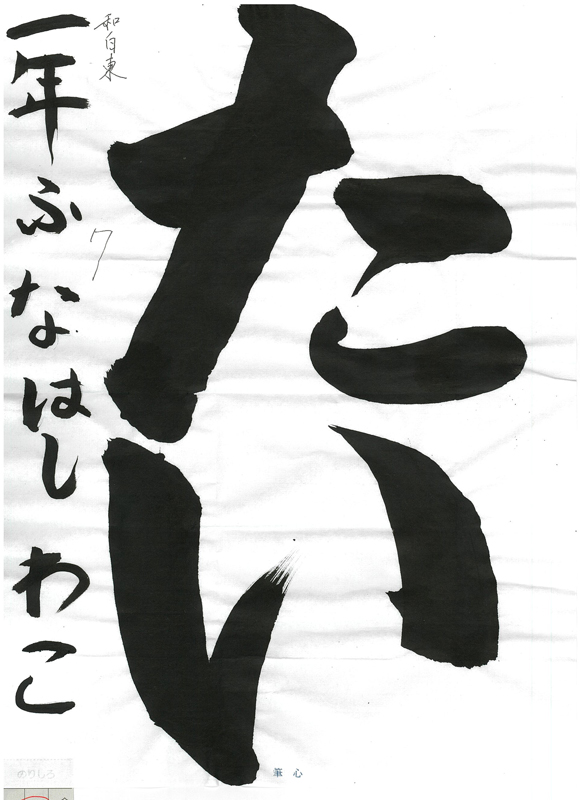 たい
和白東
ワ
一年 ふなはし わこ
筆心
のりしろ